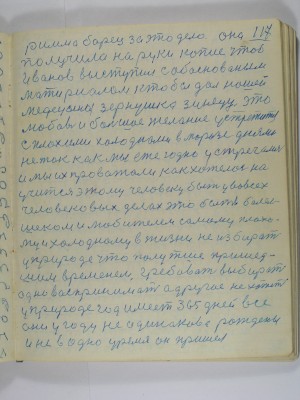 117
римма борец за это дело. она
получила на руки копие чтоб
Иванов выступил с обоснованым
материалом и чтобы дал нашей
медецыны зернушка
любовь и большое желание
с плохими холодными в морозе
не ток как мы ежегодно устречаем
и мы их провожали как хотелось на
учится этому человеку быть у всех
человековых делах это быть
и любителем самому плохо
му и холодному в жизни не избирать
у природе что получше
шим временем, требовать выбирать
одно воспринимать а другое не хотеть
у природе год имеет 365 дней все
они у году не одинаково рождены
и не в одно время он пришел